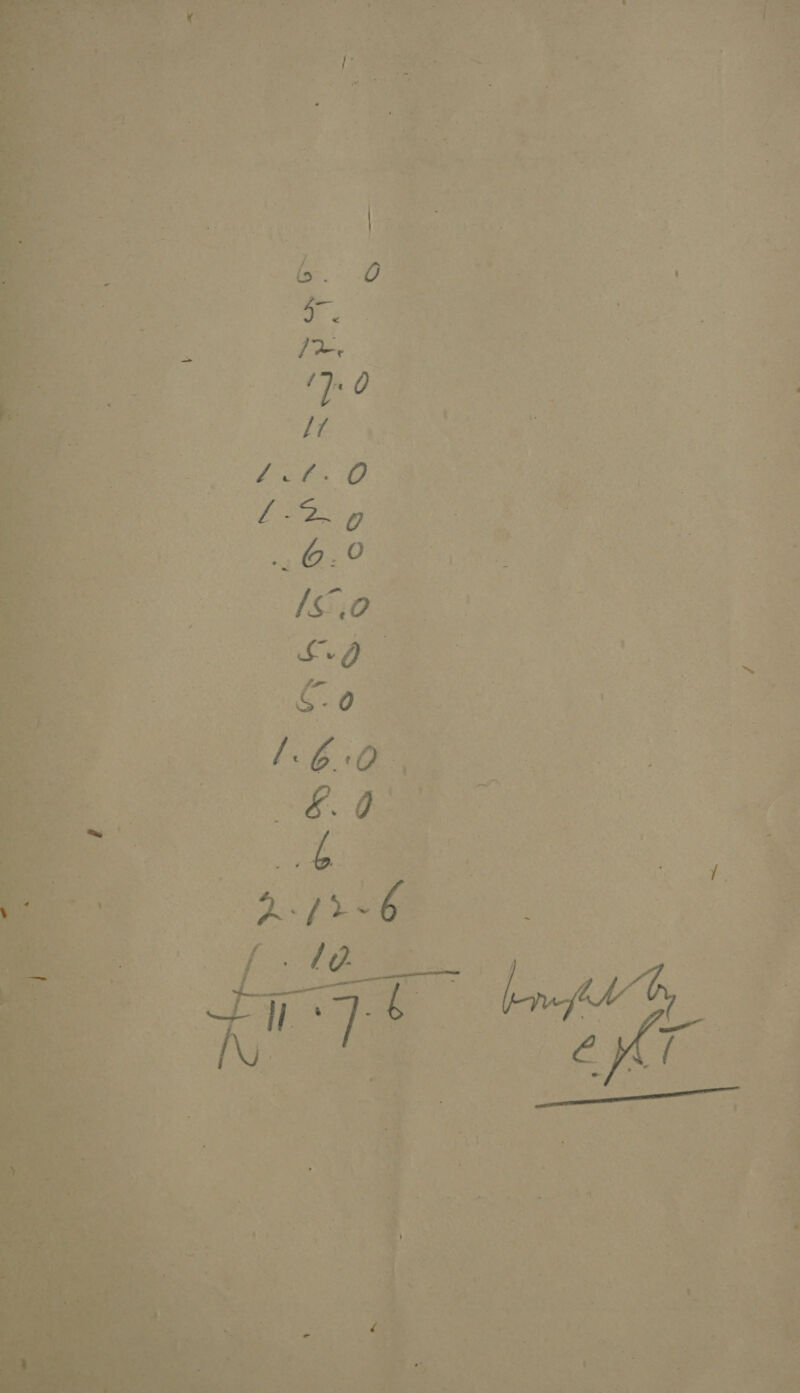 6. 0
5.
12.
7. 0
11
1. 1. 0
1 - 2 0
.. 6. 0
15. 0
5. 0
5. 0
1. 6. 0
8. 0
.. 6
2. 12 - 6
1. 10.
£ 11. 7. 6 bought by